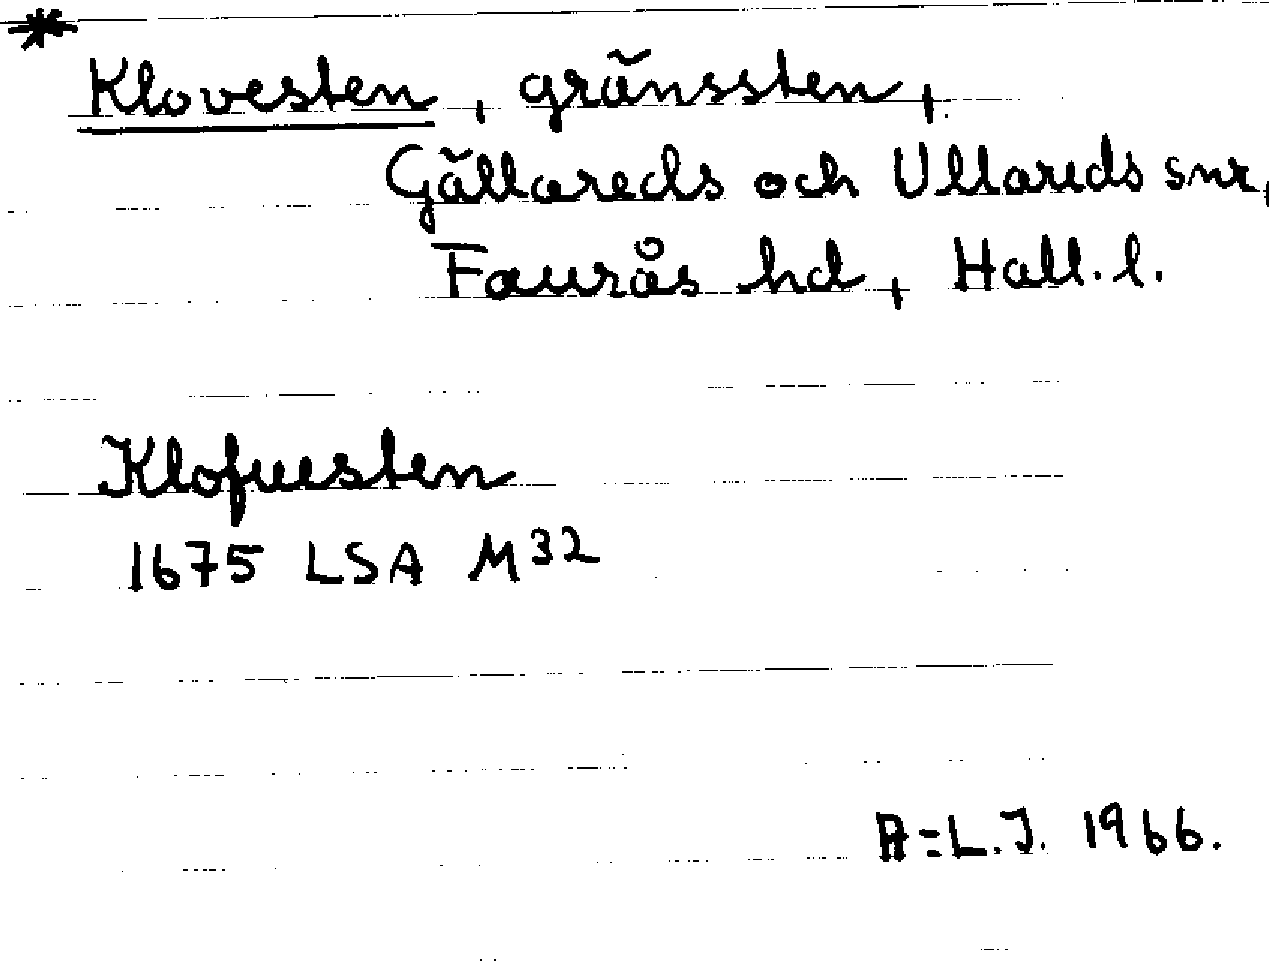 *
Klovesten, gränssten,
Gällareds och Ullareds snr,
Faurås hd, Hall. l.
Klofuesten
1675 LSA M32
A-L.J. 1966.